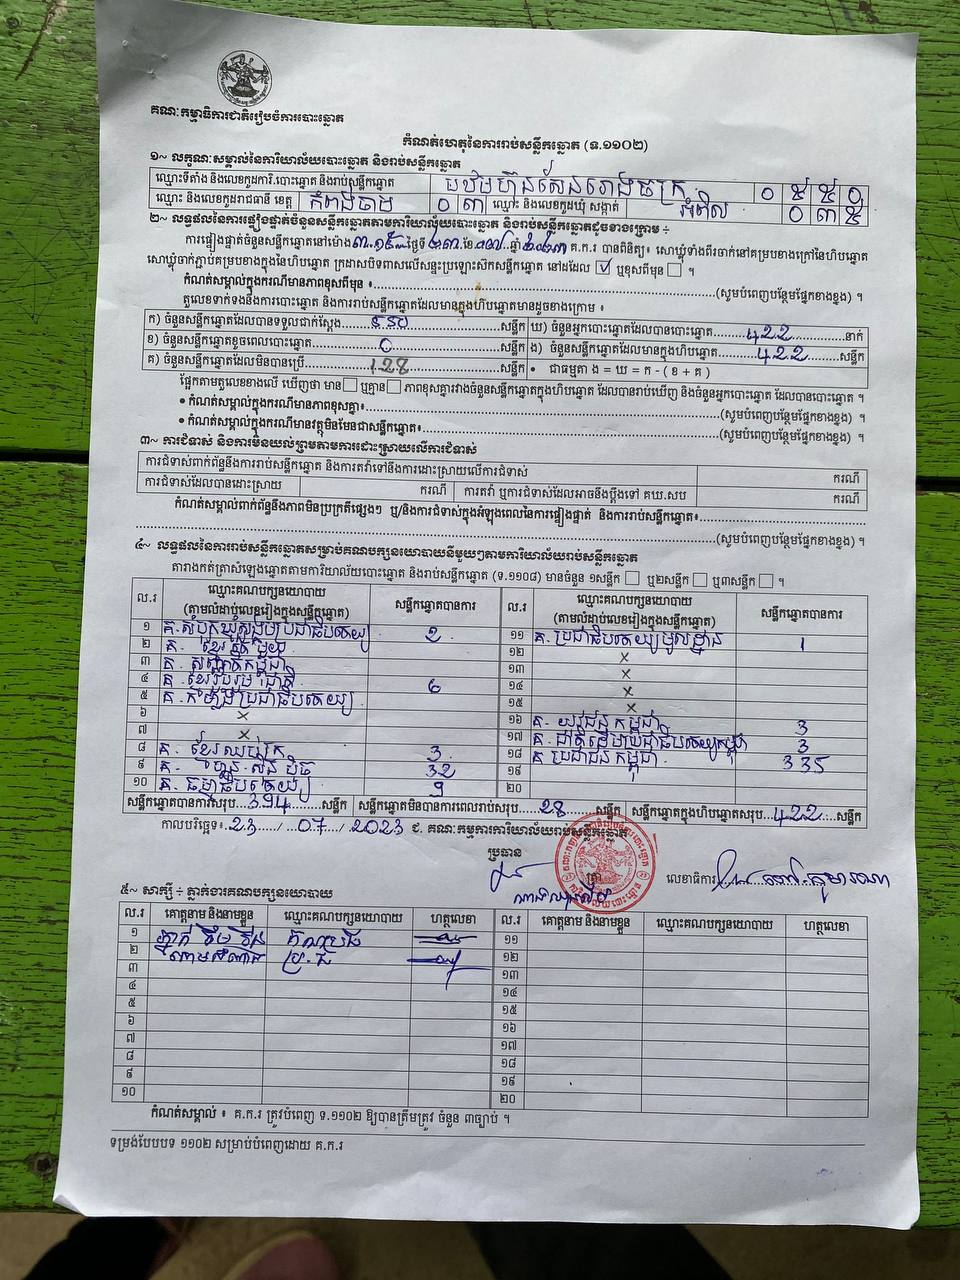 គណៈកម្មាធិការជាតិរៀបចំការបោះឆ្នោត
កំណត់ហេតុនៃការរាប់សន្លឹកឆ្នោត (ទ.១១០២)
១~ លក្ខណៈសម្គាល់នៃការិយាល័យបោះឆ្នោត និងរាប់សន្លឹកឆ្នោត
ឈ្មោះទីតាំង និងលេខកូដការិ.បោះឆ្នោត និងរាប់សន្លឹកឆ្នោត បឋម ហ៊ុន សែន រោងចក្រ ០ ៥ ៥ ០
ឈ្មោះ និងលេខកូដរាជធានី ខេត្ត កំពង់ចាម ០ ៣ ឈ្មោះ និងលេខកូដឃុំ សង្កាត់ អំពិល ០ ៣ ៥
២~ លទ្ធផលនៃការផ្ទៀងផ្ទាត់ចំនួនសន្លឹកឆ្នោតតាមការិយាល័យបោះឆ្នោត និងរាប់សន្លឹកឆ្នោតដូចខាងក្រោម ÷
ការផ្ទៀងផ្ទាត់ចំនួនសន្លឹកឆ្នោតនៅម៉ោង ៣.១៥ ថ្ងៃទី ២៣ ខែ ០៧ ឆ្នាំ ២០២៣ គ.ក.រ បានពិនិត្យ៖ សោឃ្លុំទាំងពីរចាក់នៅគម្របខាងក្រៅនៃហិបឆ្នោត
សោឃ្លុំចាក់ភ្ជាប់គម្របខាងក្នុងនៃហិបឆ្នោត ក្រដាសបិទពាសលើសន្ទះប្រឡោះស៊កសន្លឹកឆ្នោត នៅដដែល ✓ ឬខុសពីមុន ។
កំណត់សម្គាល់ក្នុងករណីមានភាពខុសពីមុន ៖ (សូមបំពេញបន្ថែមផ្នែកខាងខ្នង) ។
តួលេខទាក់ទងនឹងការបោះឆ្នោត និងការរាប់សន្លឹកឆ្នោតដែលមានក្នុងហិបឆ្នោតមានដូចខាងក្រោម ៖
ក) ចំនួនសន្លឹកឆ្នោតដែលបានទទួលជាក់ស្តែង ៥៥០ សន្លឹក ឃ) ចំនួនអ្នកបោះឆ្នោតដែលបានបោះឆ្នោត 422 នាក់
ខ) ចំនួនសន្លឹកឆ្នោតខូចពេលបោះឆ្នោត 0 សន្លឹក ង) ចំនួនសន្លឹកឆ្នោតដែលមាននៅក្នុងហិបឆ្នោត 422 សន្លឹក
គ) ចំនួនសន្លឹកឆ្នោតដែលមិនបានប្រើ 128 សន្លឹក • ជាធម្មតា ង = ឃ = ក - ( ខ + គ )
ផ្អែកតាមតួលេខខាងលើ ឃើញថា មាន ឬគ្មាន ភាពខុសគ្នារវាងចំនួនសន្លឹកឆ្នោតក្នុងហិបឆ្នោត ដែលបានរាប់ឃើញ និងចំនួនអ្នកបោះឆ្នោត ដែលបានបោះឆ្នោត ។
• កំណត់សម្គាល់ក្នុងករណីមានភាពខុសគ្នា៖ (សូមបំពេញបន្ថែមផ្នែកខាងខ្នង) ។
• កំណត់សម្គាល់ក្នុងករណីមានវត្ថុមិនមែនជាសន្លឹកឆ្នោត៖ (សូមបំពេញបន្ថែមផ្នែកខាងខ្នង) ។
៣~ ការជំទាស់ និងការមិនយល់ព្រមតាមការដោះស្រាយលើការជំទាស់
ការជំទាស់ពាក់ព័ន្ធនឹងការរាប់សន្លឹកឆ្នោត និងការតវ៉ាទៅនឹងការដោះស្រាយលើការជំទាស់ ករណី
ការជំទាស់ដែលបានដោះស្រាយ ករណី ការតវ៉ា ឬការជំទាស់ដែលអាចនឹងប្តឹងទៅ គឃ.សប ករណី
កំណត់សម្គាល់ពាក់ព័ន្ធនឹងភាពមិនប្រក្រតីផ្សេងៗ ឬ/និងការជំទាស់ក្នុងអំឡុងពេលនៃការផ្ទៀងផ្ទាត់ និងការរាប់សន្លឹកឆ្នោត៖
(សូមបំពេញបន្ថែមផ្នែកខាងខ្នង) ។
៤~ លទ្ធផលនៃការរាប់សន្លឹកឆ្នោតសម្រាប់គណបក្សនយោបាយនីមួយៗតាមការិយាល័យរាប់សន្លឹកឆ្នោត
តារាងកត់ត្រាសំឡេងឆ្នោតតាមការិយាល័យបោះឆ្នោត និងរាប់សន្លឹកឆ្នោត (ទ.១១០៨) មានចំនួន ១សន្លឹក ឬ២សន្លឹក ឬ៣សន្លឹក ។
ល.រ ឈ្មោះគណបក្សនយោបាយ (តាមលំដាប់លេខរៀងក្នុងសន្លឹកឆ្នោត) សន្លឹកឆ្នោតបានការ ល.រ ឈ្មោះគណបក្សនយោបាយ (តាមលំដាប់លេខរៀងក្នុងសន្លឹកឆ្នោត) សន្លឹកឆ្នោតបានការ
១ គ.សំបុកឃ្មុំសង្គមប្រជាធិបតេយ្យ 2 ១១ គ. ប្រជាធិបតេយ្យមូលដ្ឋាន 1
២ គ. ខ្មែរតែមួយ ១២ x
៣ គ. សញ្ជាតិកម្ពុជា ១៣ x
៤ គ. ខ្មែររួបរួមជាតិ 6 ១៤ x
៥ គ.កម្លាំងប្រជាធិបតេយ្យ ១៥ x
៦ x ១៦ គ. យុវជនកម្ពុជា 3
៧ x ១៧ គ. ជាតិដើមប្រជាធិបតេយ្យកម្ពុជា 3
៨ គ. ខ្មែរឈប់ក្រ 3 ១៨ គ ប្រជាជនកម្ពុជា 335
៩ គ. ហ្វ៊ុនស៊ិនប៉ិច 32 ១៩
១០ គ. ធម្មាធិបតេយ្យ 9 ២០
សន្លឹកឆ្នោតបានការសរុប 394 សន្លឹក សន្លឹកឆ្នោតមិនបានការពេលរាប់សរុប 28 សន្លឹក សន្លឹកឆ្នោតក្នុងហិបឆ្នោតសរុប 422 សន្លឹក
កាលបរិច្ឆេទ៖ 23 / 07 / 2023 ជ. គណៈកម្មការការិយាល័យរាប់សន្លឹកឆ្នោត
ប្រធាន
ត្រា
លេខាធិការ
៥~ សាក្សី ÷ ភ្នាក់ងារគណបក្សនយោបាយ
ល.រ គោត្តនាម និងនាមខ្លួន ឈ្មោះគណបក្សនយោបាយ ហត្ថលេខា ល.រ គោត្តនាម និងនាមខ្លួន ឈ្មោះគណបក្សនយោបាយ ហត្ថលេខា
១ ១១
២ ប្រ.ជ ១២
៣ ១៣
៤ ១៤
៥ ១៥
៦ ១៦
៧ ១៧
៨ ១៨
៩ ១៩
១០ ២០
កំណត់សម្គាល់ ៖ គ.ក.រ ត្រូវបំពេញ ទ.១១០២ ឱ្យបានត្រឹមត្រូវ ចំនួន ៣ច្បាប់ ។
ទម្រង់បែបបទ ១១០២ សម្រាប់បំពេញដោយ គ.ក.រ